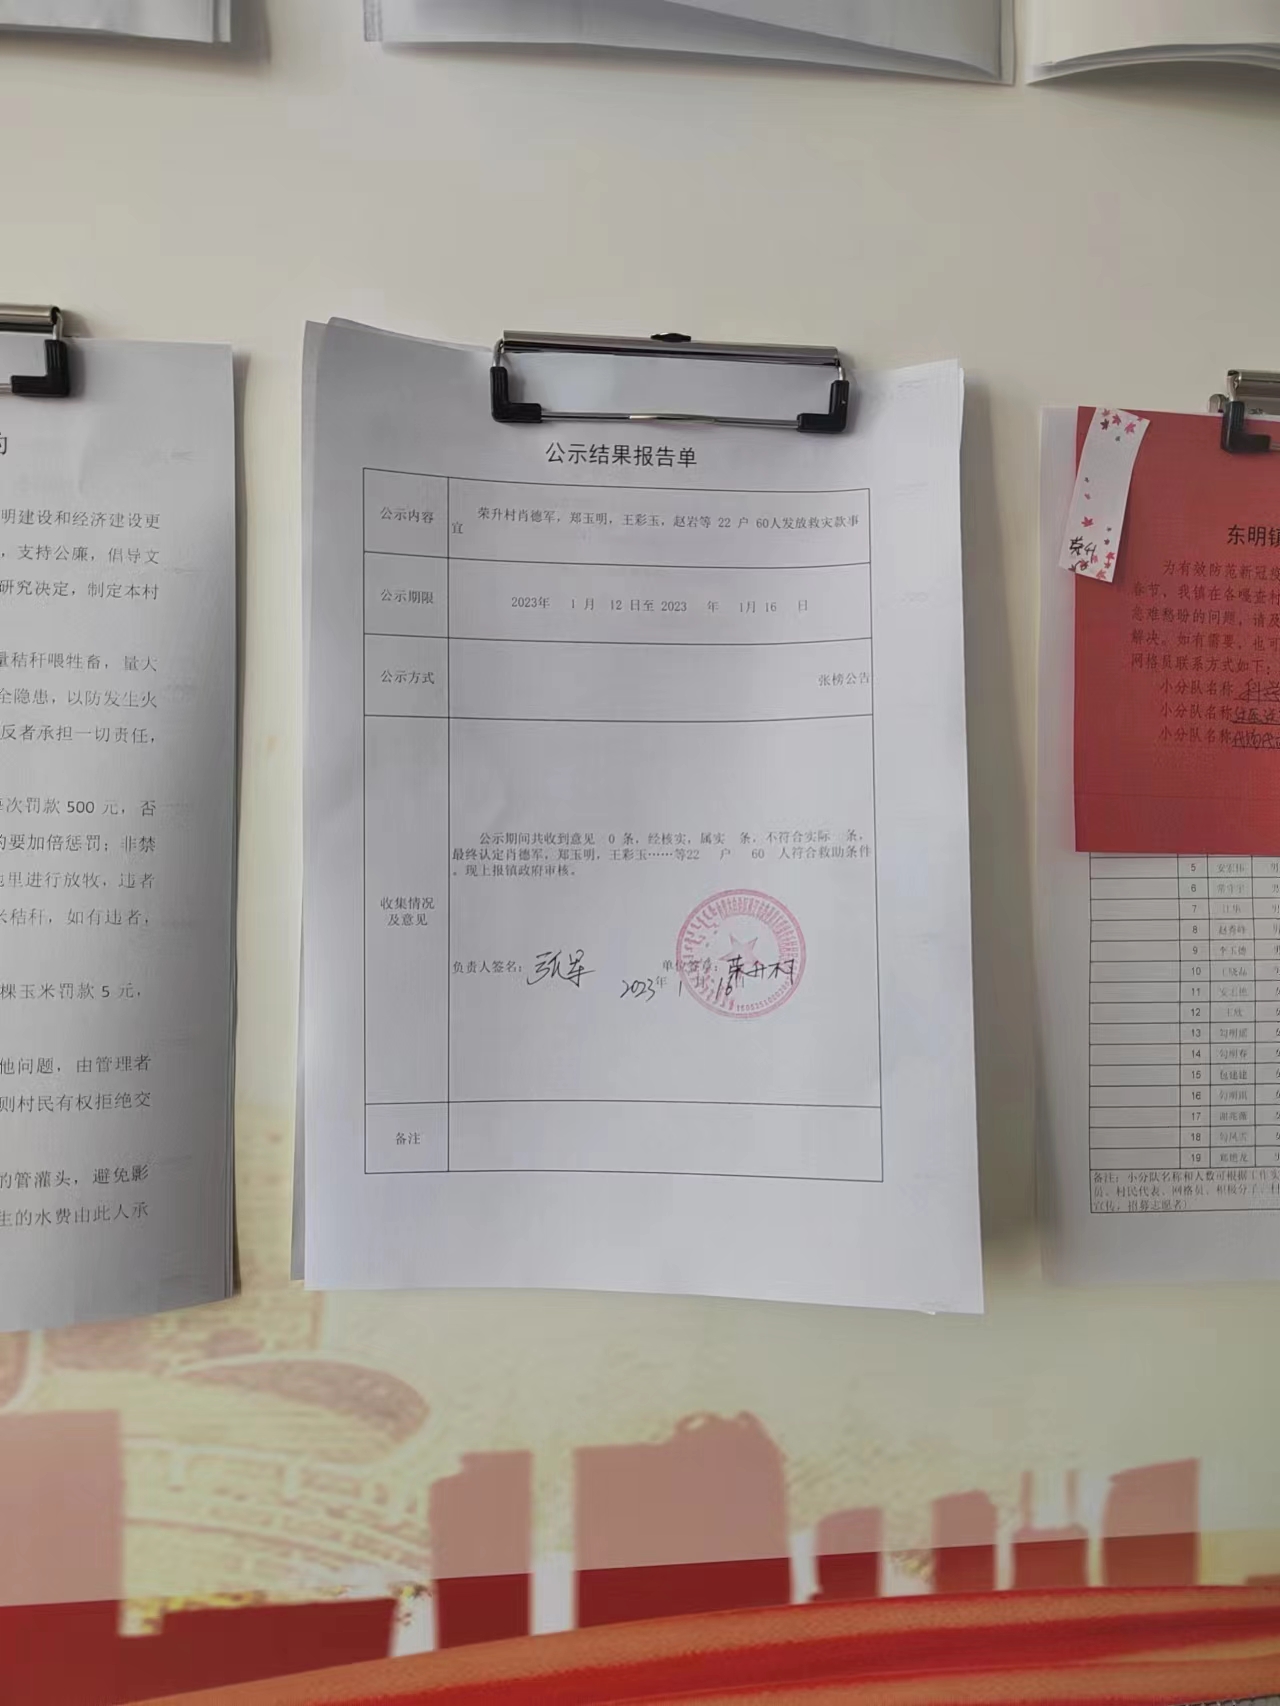 约
明建设和经济建设更
，支持公廉，倡导文
研究决定，制定本村
量秸秆喂牲畜，量大
全隐患，以防发生火
反者承担一切责任，
每次罚款 500 元，否
的要加倍惩罚；非禁
地里进行放牧，违者
米秸秆，如有违者，
棵玉米罚款 5 元，
他问题，由管理者
则村民有权拒绝交
的管灌头，避免影
生的水费由此人承
公示结果报告单
公示内容
荣升村肖德军，郑玉明，王彩玉，赵岩等 22 户 60人发放救灾款事
宜
公示期限
2023年 1 月 12 日至 2023 年 1月 16 日
公示方式
张榜公告
收集情况
及意见
公示期间共收到意见 0 条，经核实，属实 条，不符合实际 条，
最终认定肖德军，郑玉明，王彩玉……等22 户 60 人符合救助条件
。现上报镇政府审核。
负责人签名：
单位签章：荣升村
2023年 1 月 16 日
备注
荣升
东明镇
为有效防范新冠疫
春节，我镇在各嘎查村
急难愁盼的问题，请及
解决。如有需要，也可
网格员联系方式如下：
小分队名称
小分队名称
小分队名称
5
6
7
8 赵秀峰
9 李玉德
10 王晓磊
11
12
13
14
15
16
17
18
19
备注：小分队名称和人数可根据工作实
员、村民代表、网格员、积极分子、村
宣传，招募志愿者）